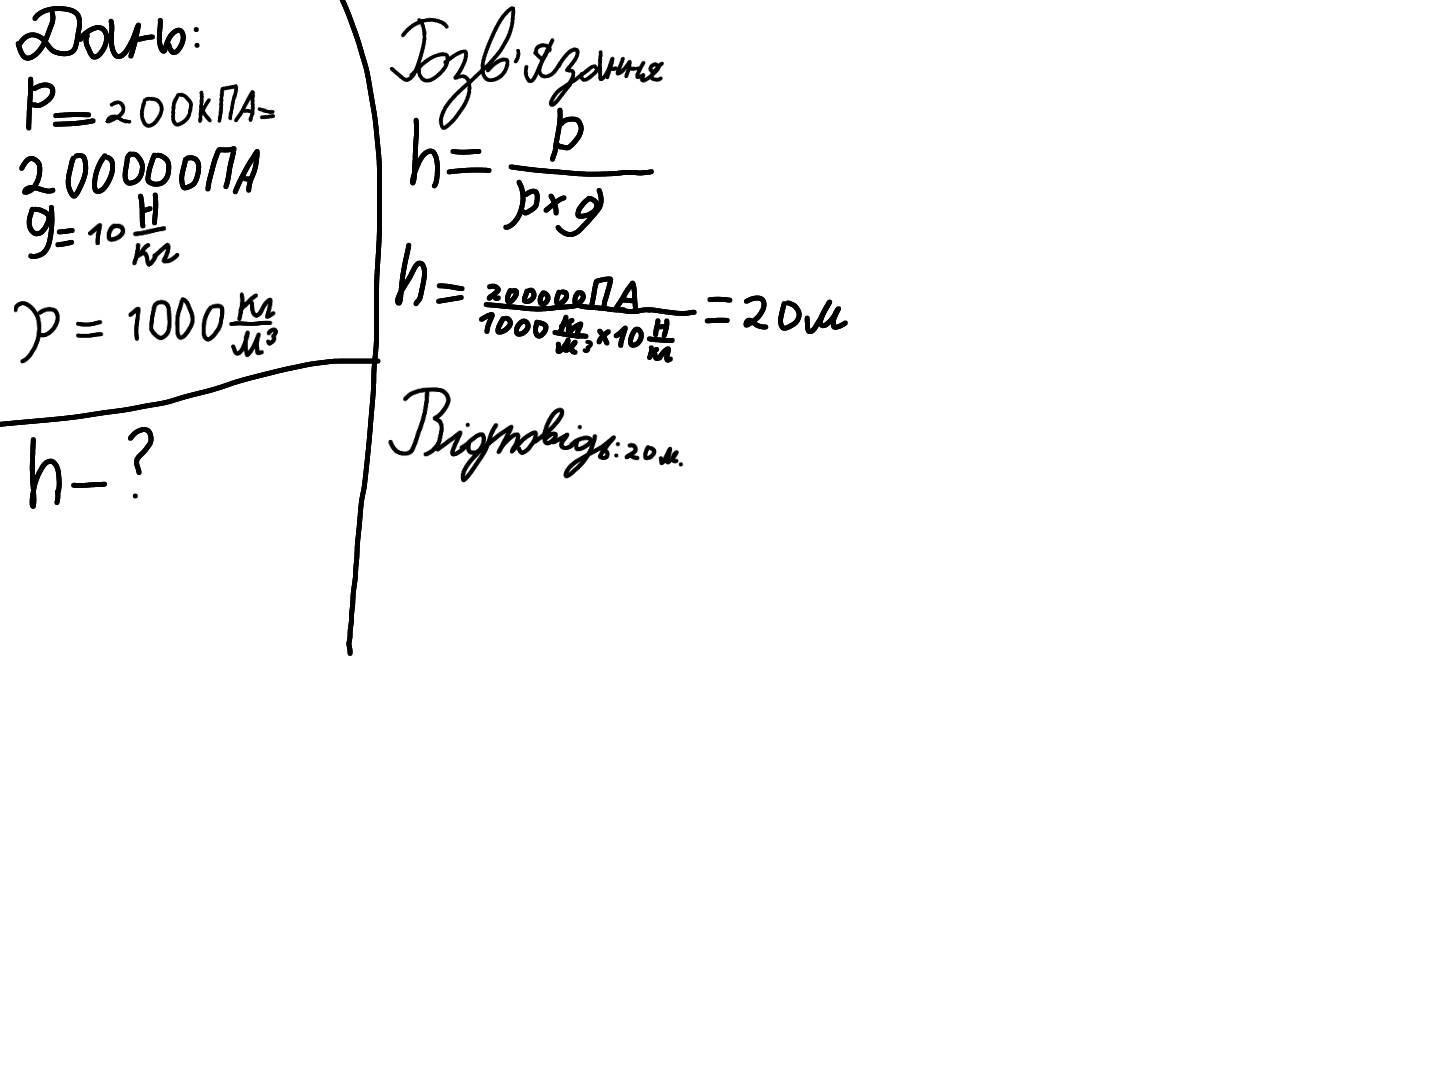 Дано:
P = 200кПА =
200000ПА
g = 10 Н/кг
ρ = 1000 кг/м³
h - ?
Розв'язання
h = p / ρ × g
h = 200000ПА / 1000 кг/м³ × 10 Н/кг = 20м
Відповідь: 20м.